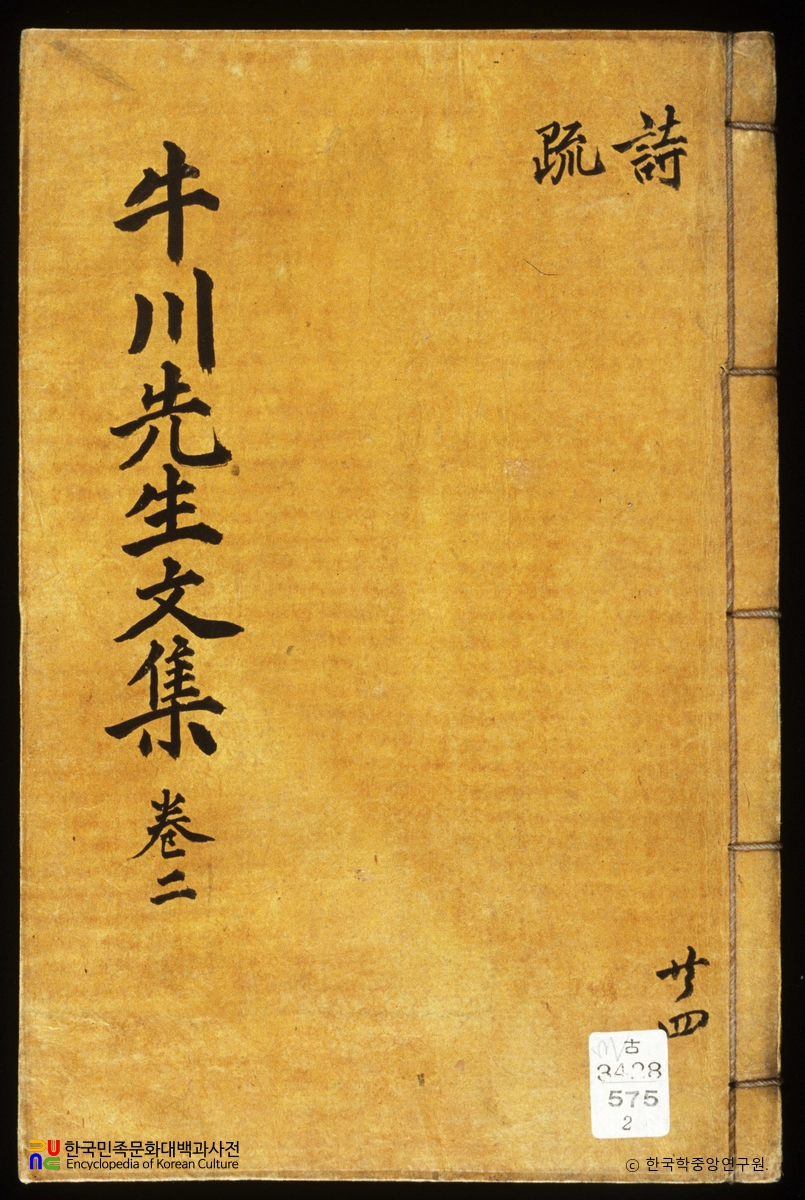 詩
疏
牛川先生文集 卷二
共四
古
3428
575
2
한국민족문화대백과사전
Encyclopedia of Korean Culture
ⓒ 한국학중앙연구원.